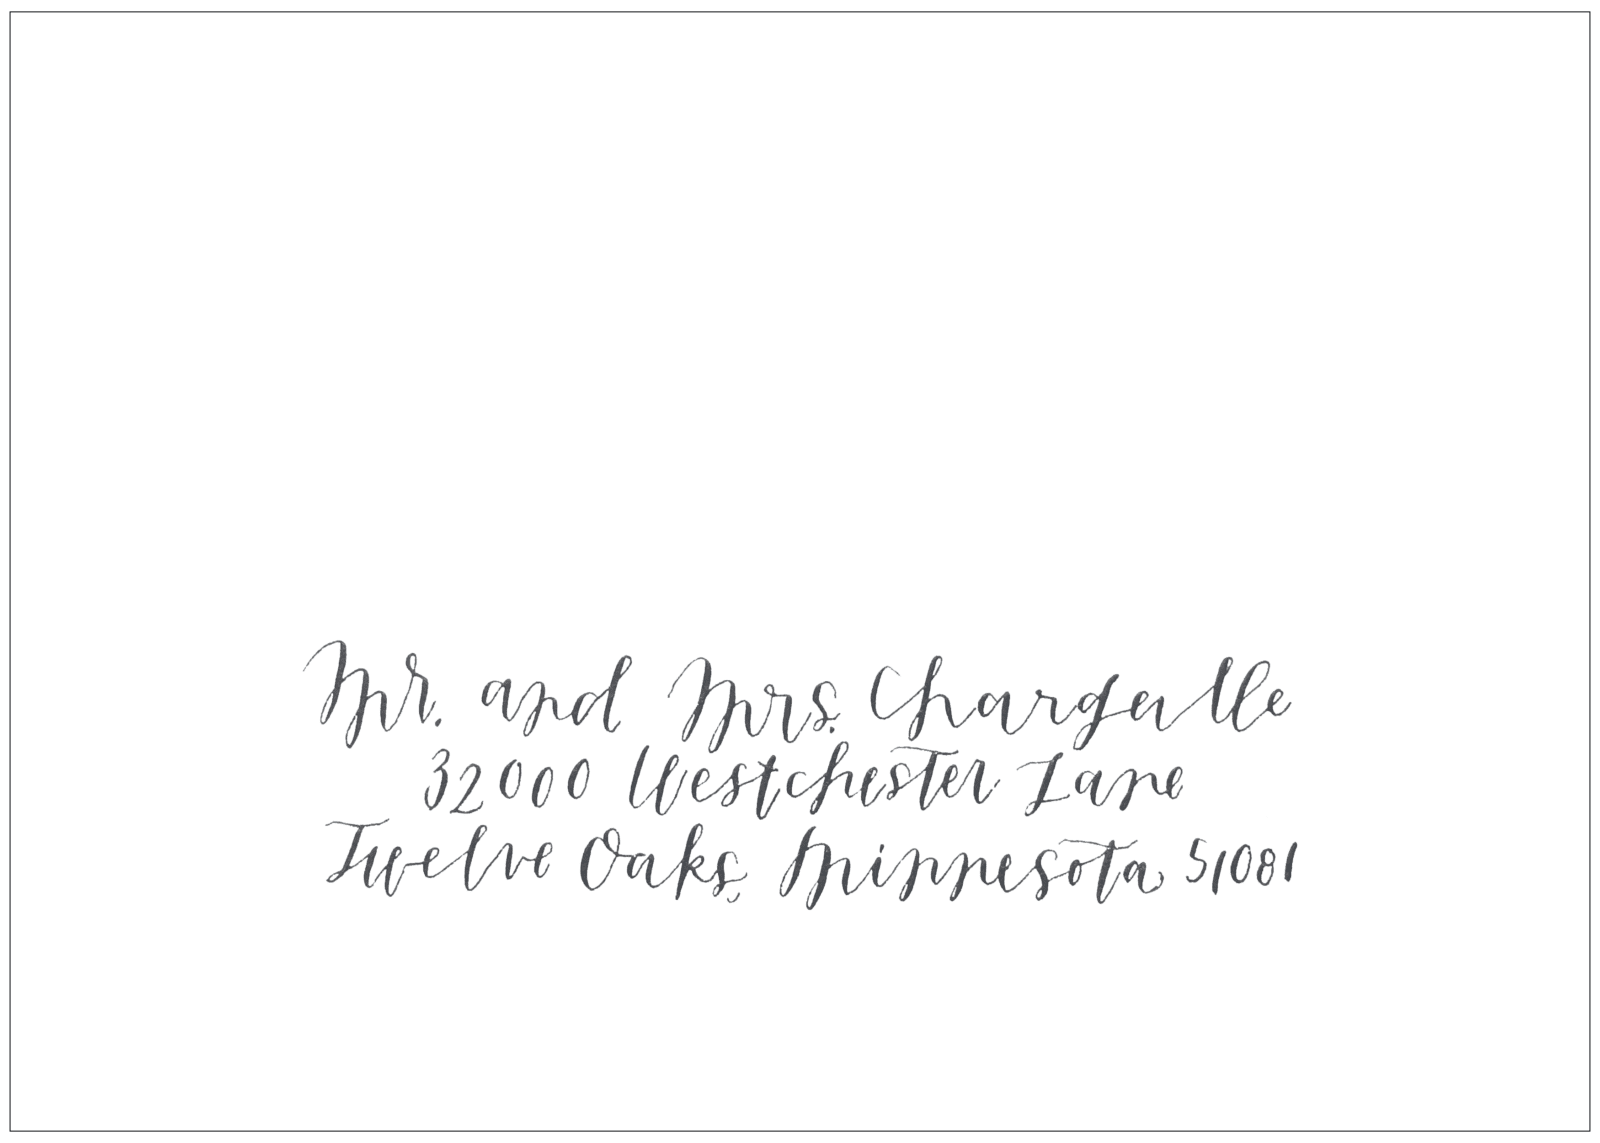 Mr. and Mrs. Chargualle
32000 Westchester Lane
Twelve Oaks, Minnesota, 51081